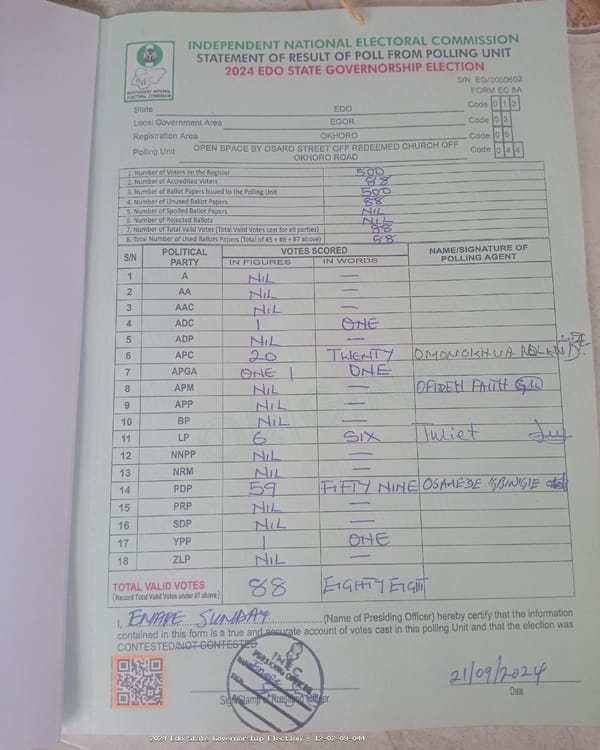 INDEPENDENT NATIONAL ELECTORAL COMMISSION
STATEMENT OF RESULT OF POLL FROM POLLING UNIT
2024 EDO STATE GOVERNORSHIP ELECTION
INDEPENDENT NATIONAL ELECTORAL COMMISSION
S/N: EG/0000602
FORM EC 8A
State EDO Code 0 1 2
Local Government Area EGOR Code 0 2
Registration Area OKHORO Code 0 9
Polling Unit OPEN SPACE BY OSARO STREET OFF REDEEMED CHURCH OFF OKHORO ROAD Code 0 4 4
1. Number of Voters on the Register 500
2. Number of Accredited Voters 88
3. Number of Ballot Papers Issued to the Polling Unit 500
4. Number of Unused Ballot Papers 88
5. Number of Spoiled Ballot Papers NIL
6. Number of Rejected Ballots NIL
7. Number of Total Valid Votes (Total Valid Votes cast for all parties) 88
8. Total Number of Used Ballots Papers (Total of #5 + #6 + #7 above) 88
S/N POLITICAL PARTY VOTES SCORED NAME/SIGNATURE OF POLLING AGENT
IN FIGURES IN WORDS
1 A NIL —
2 AA NIL —
3 AAC NIL —
4 ADC 1 ONE
5 ADP NIL —
6 APC 20 TWENTY OMONOKHUA
7 APGA ONE 1 ONE
8 APM NIL — FAITH
9 APP NIL —
10 BP NIL —
11 LP 6 SIX Juliet
12 NNPP NIL —
13 NRM NIL —
14 PDP 59 FIFTY NINE OSAMEDE
15 PRP NIL —
16 SDP NIL —
17 YPP 1 ONE
18 ZLP NIL —
TOTAL VALID VOTES 88 EIGHTY EIGHT
(Record Total Valid Votes under #7 above)
I, SUNDAY (Name of Presiding Officer) hereby certify that the information
contained in this form is a true and accurate account of votes cast in this polling Unit and that the election was
CONTESTED/NOT CONTESTED
INEC
PRESIDING OFFICER
Sign/Stamp of Presiding Officer
21/09/2024
Date
2024 Edo State Governorship Election : 12-02-09-044